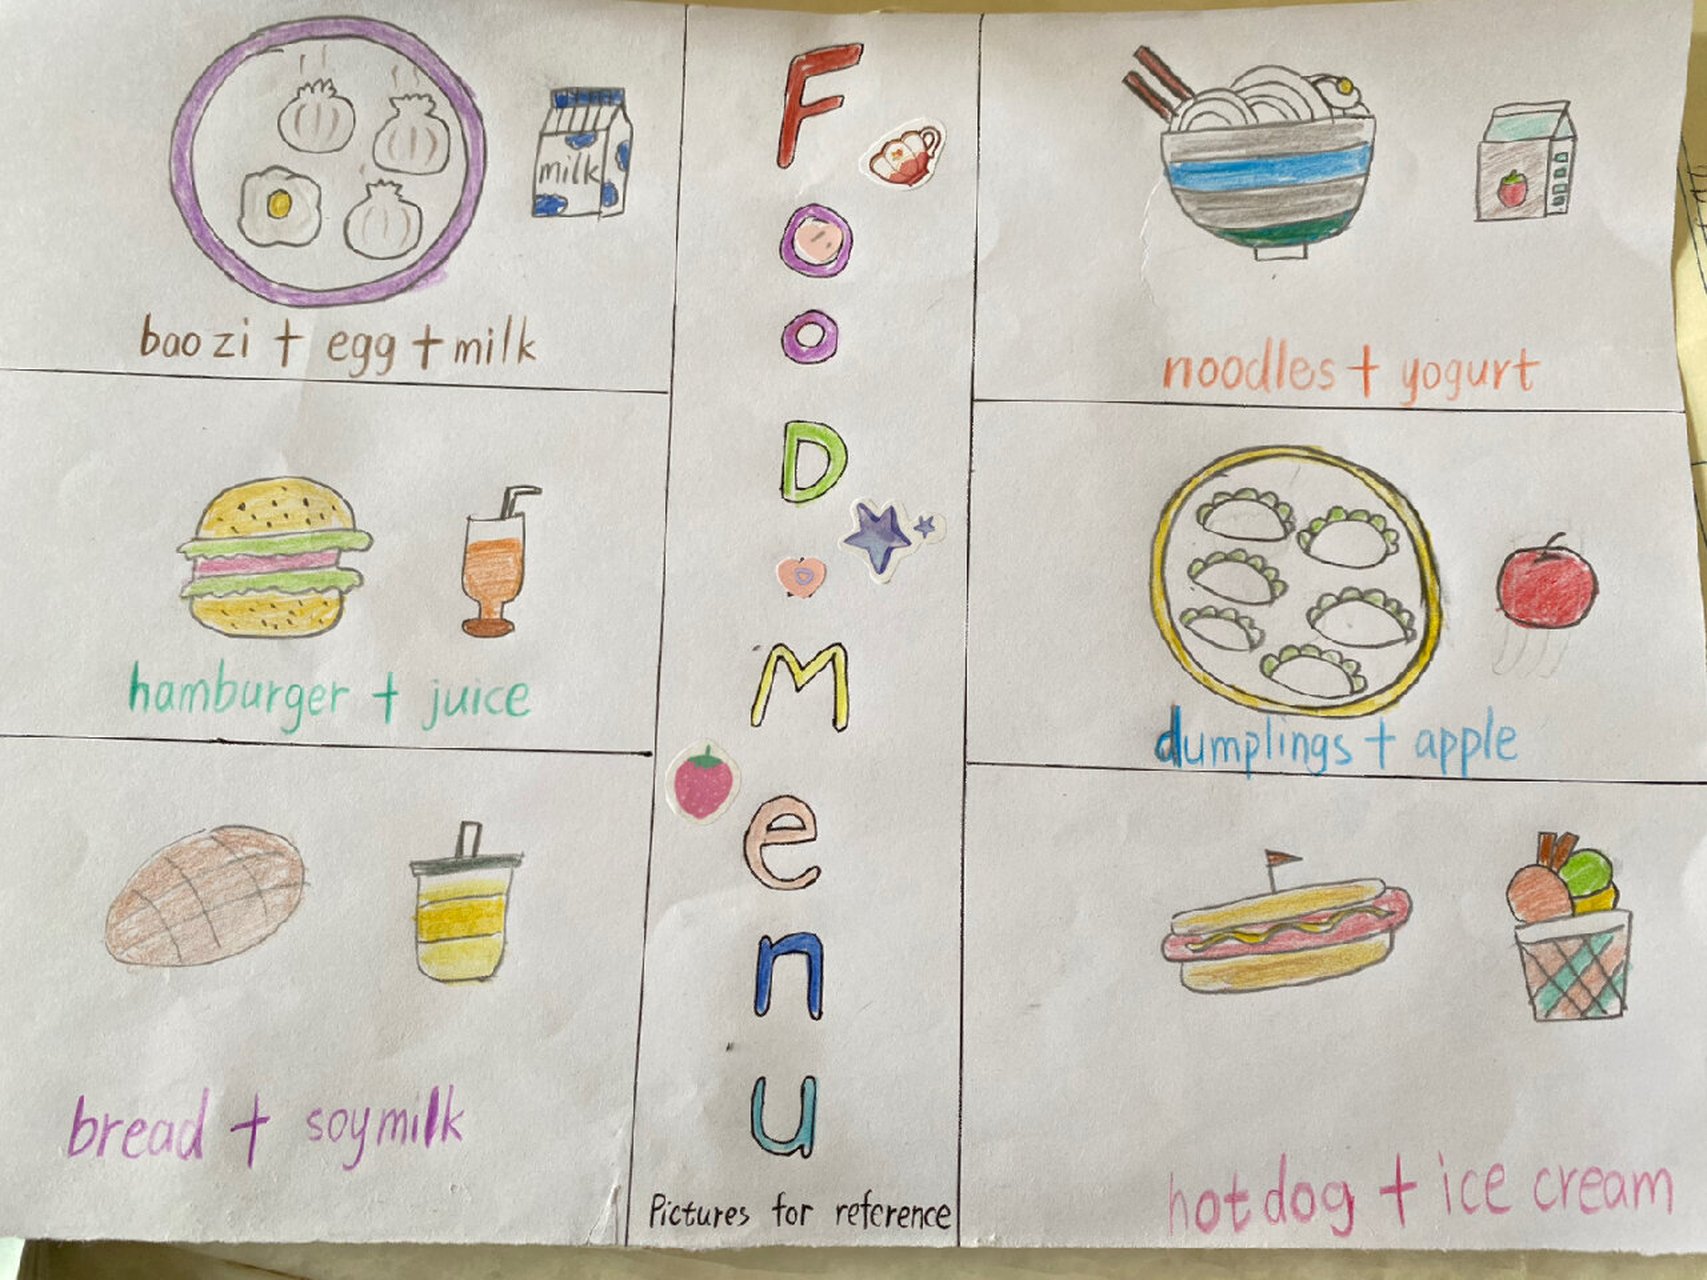 baozi + egg + milk
milk
hamburger + juice
bread + soymilk
FooD · Menu
Pictures for reference
noodles + yogurt
dumplings + apple
hotdog + ice cream